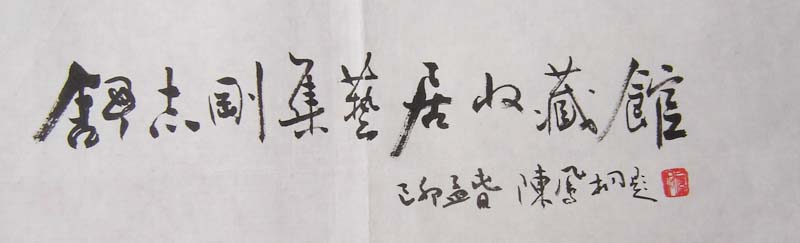 舒志剛集藝居收藏館
己卯孟春 陳鳳桐題